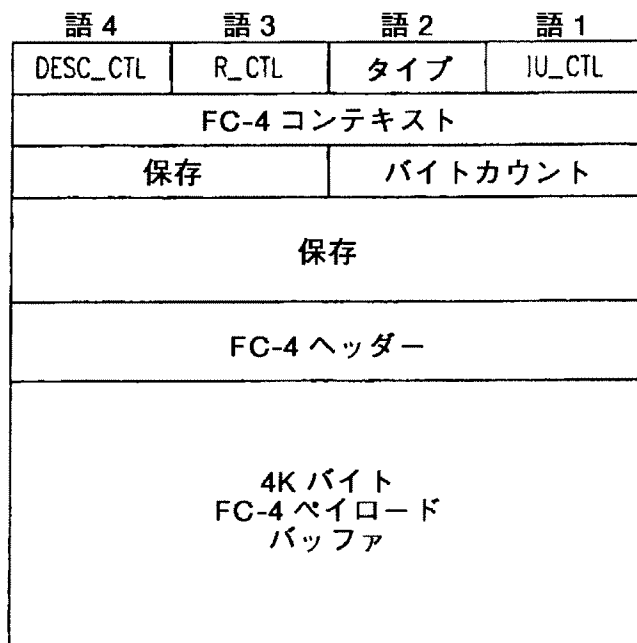 語 4 語 3 語 2 語 1
DESC_CTL R_CTL タイプ IU_CTL
FC-4 コンテキスト
保存 バイトカウント
保存
FC-4 ヘッダー
4K バイト
FC-4 ペイロード
バッファ